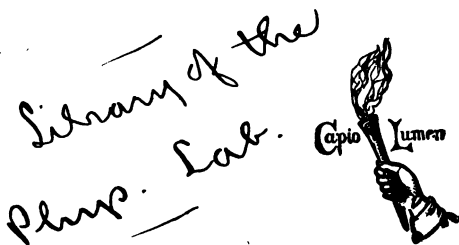 Library of the
Phys. Lab.
Capio Lumen